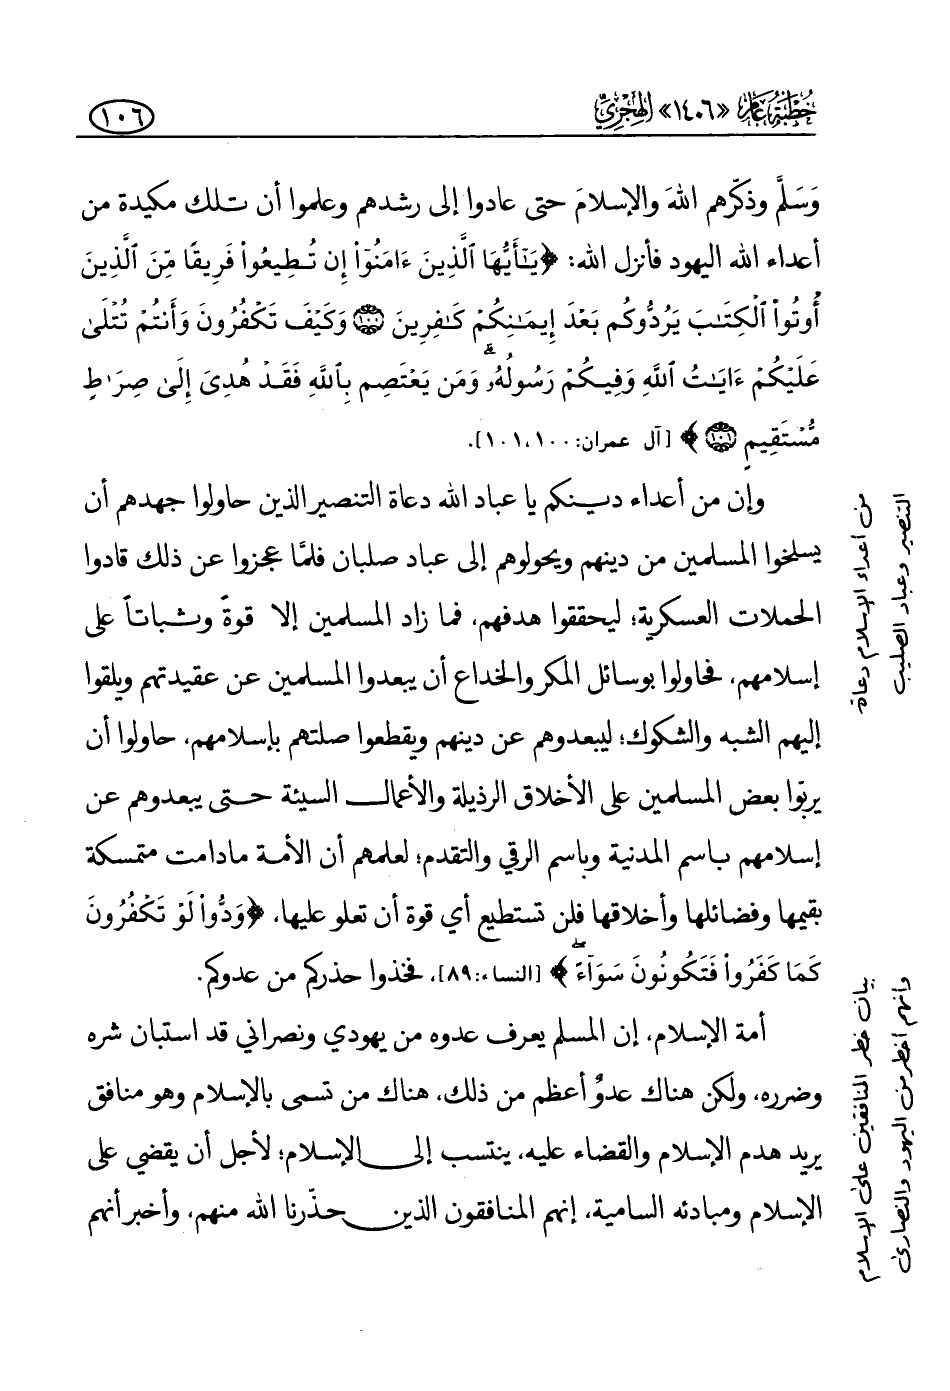 خطبة عام «١٤٠٦» الهجري
١٠٦
وَسَلَّم وذكّرهم اللهَ والإسلامَ حتى عادوا إلى رشدهم وعلموا أن تلك مكيدة من
أعداء الله اليهود فأنزل الله: ﴿يَٰٓأَيُّهَا ٱلَّذِينَ ءَامَنُوٓا۟ إِن تُطِيعُوا۟ فَرِيقًا مِّنَ ٱلَّذِينَ
أُوتُوا۟ ٱلْكِتَٰبَ يَرُدُّوكُم بَعْدَ إِيمَٰنِكُمْ كَٰفِرِينَ ۝١٠٠ وَكَيْفَ تَكْفُرُونَ وَأَنتُمْ تُتْلَىٰ
عَلَيْكُمْ ءَايَٰتُ ٱللَّهِ وَفِيكُمْ رَسُولُهُۥ ۗ وَمَن يَعْتَصِم بِٱللَّهِ فَقَدْ هُدِىَ إِلَىٰ صِرَٰطٍ
مُّسْتَقِيمٍ ۝١٠١﴾ [آل عمران: ١٠٠، ١٠١].
وإن من أعداء دينكم يا عباد الله دعاة التنصير الذين حاولوا جهدهم أن
يسلخوا المسلمين من دينهم ويحولوهم إلى عباد صلبان فلمَّا عجزوا عن ذلك قادوا
الحملات العسكرية؛ ليحققوا هدفهم، فما زاد المسلمين إلا قوةً وثباتاً على
إسلامهم، فحاولوا بوسائل المكر والخداع أن يبعدوا المسلمين عن عقيدتهم ويلقوا
إليهم الشبه والشكوك؛ ليبعدوهم عن دينهم ويقطعوا صلتهم بإسلامهم، حاولوا أن
يربّوا بعض المسلمين على الأخلاق الرذيلة والأعمال السيئة حتى يبعدوهم عن
إسلامهم باسم المدنية وباسم الرقي والتقدم؛ لعلمهم أن الأمة مادامت متمسكة
بقيمها وفضائلها وأخلاقها فلن تستطيع أي قوة أن تعلو عليها، ﴿وَدُّوا۟ لَوْ تَكْفُرُونَ
كَمَا كَفَرُوا۟ فَتَكُونُونَ سَوَآءً ۖ﴾ [النساء: ٨٩]، فخذوا حذركم من عدوكم.
أمة الإسلام، إن المسلم يعرف عدوه من يهودي ونصراني قد استبان شره
وضرره، ولكن هناك عدوٌ أعظم من ذلك، هناك من تسمى بالإسلام وهو منافق
يريد هدم الإسلام والقضاء عليه، ينتسب إلى الإسلام؛ لأجل أن يقضي على
الإسلام ومبادئه السامية، إنهم المنافقون الذين حذّرنا الله منهم، وأخبر أنهم
من أعداء الإسلام دعاة
التنصير وعباد الصليب
بيان خطر المنافقين على الإسلام
وأنهم أخطر من اليهود والنصارى